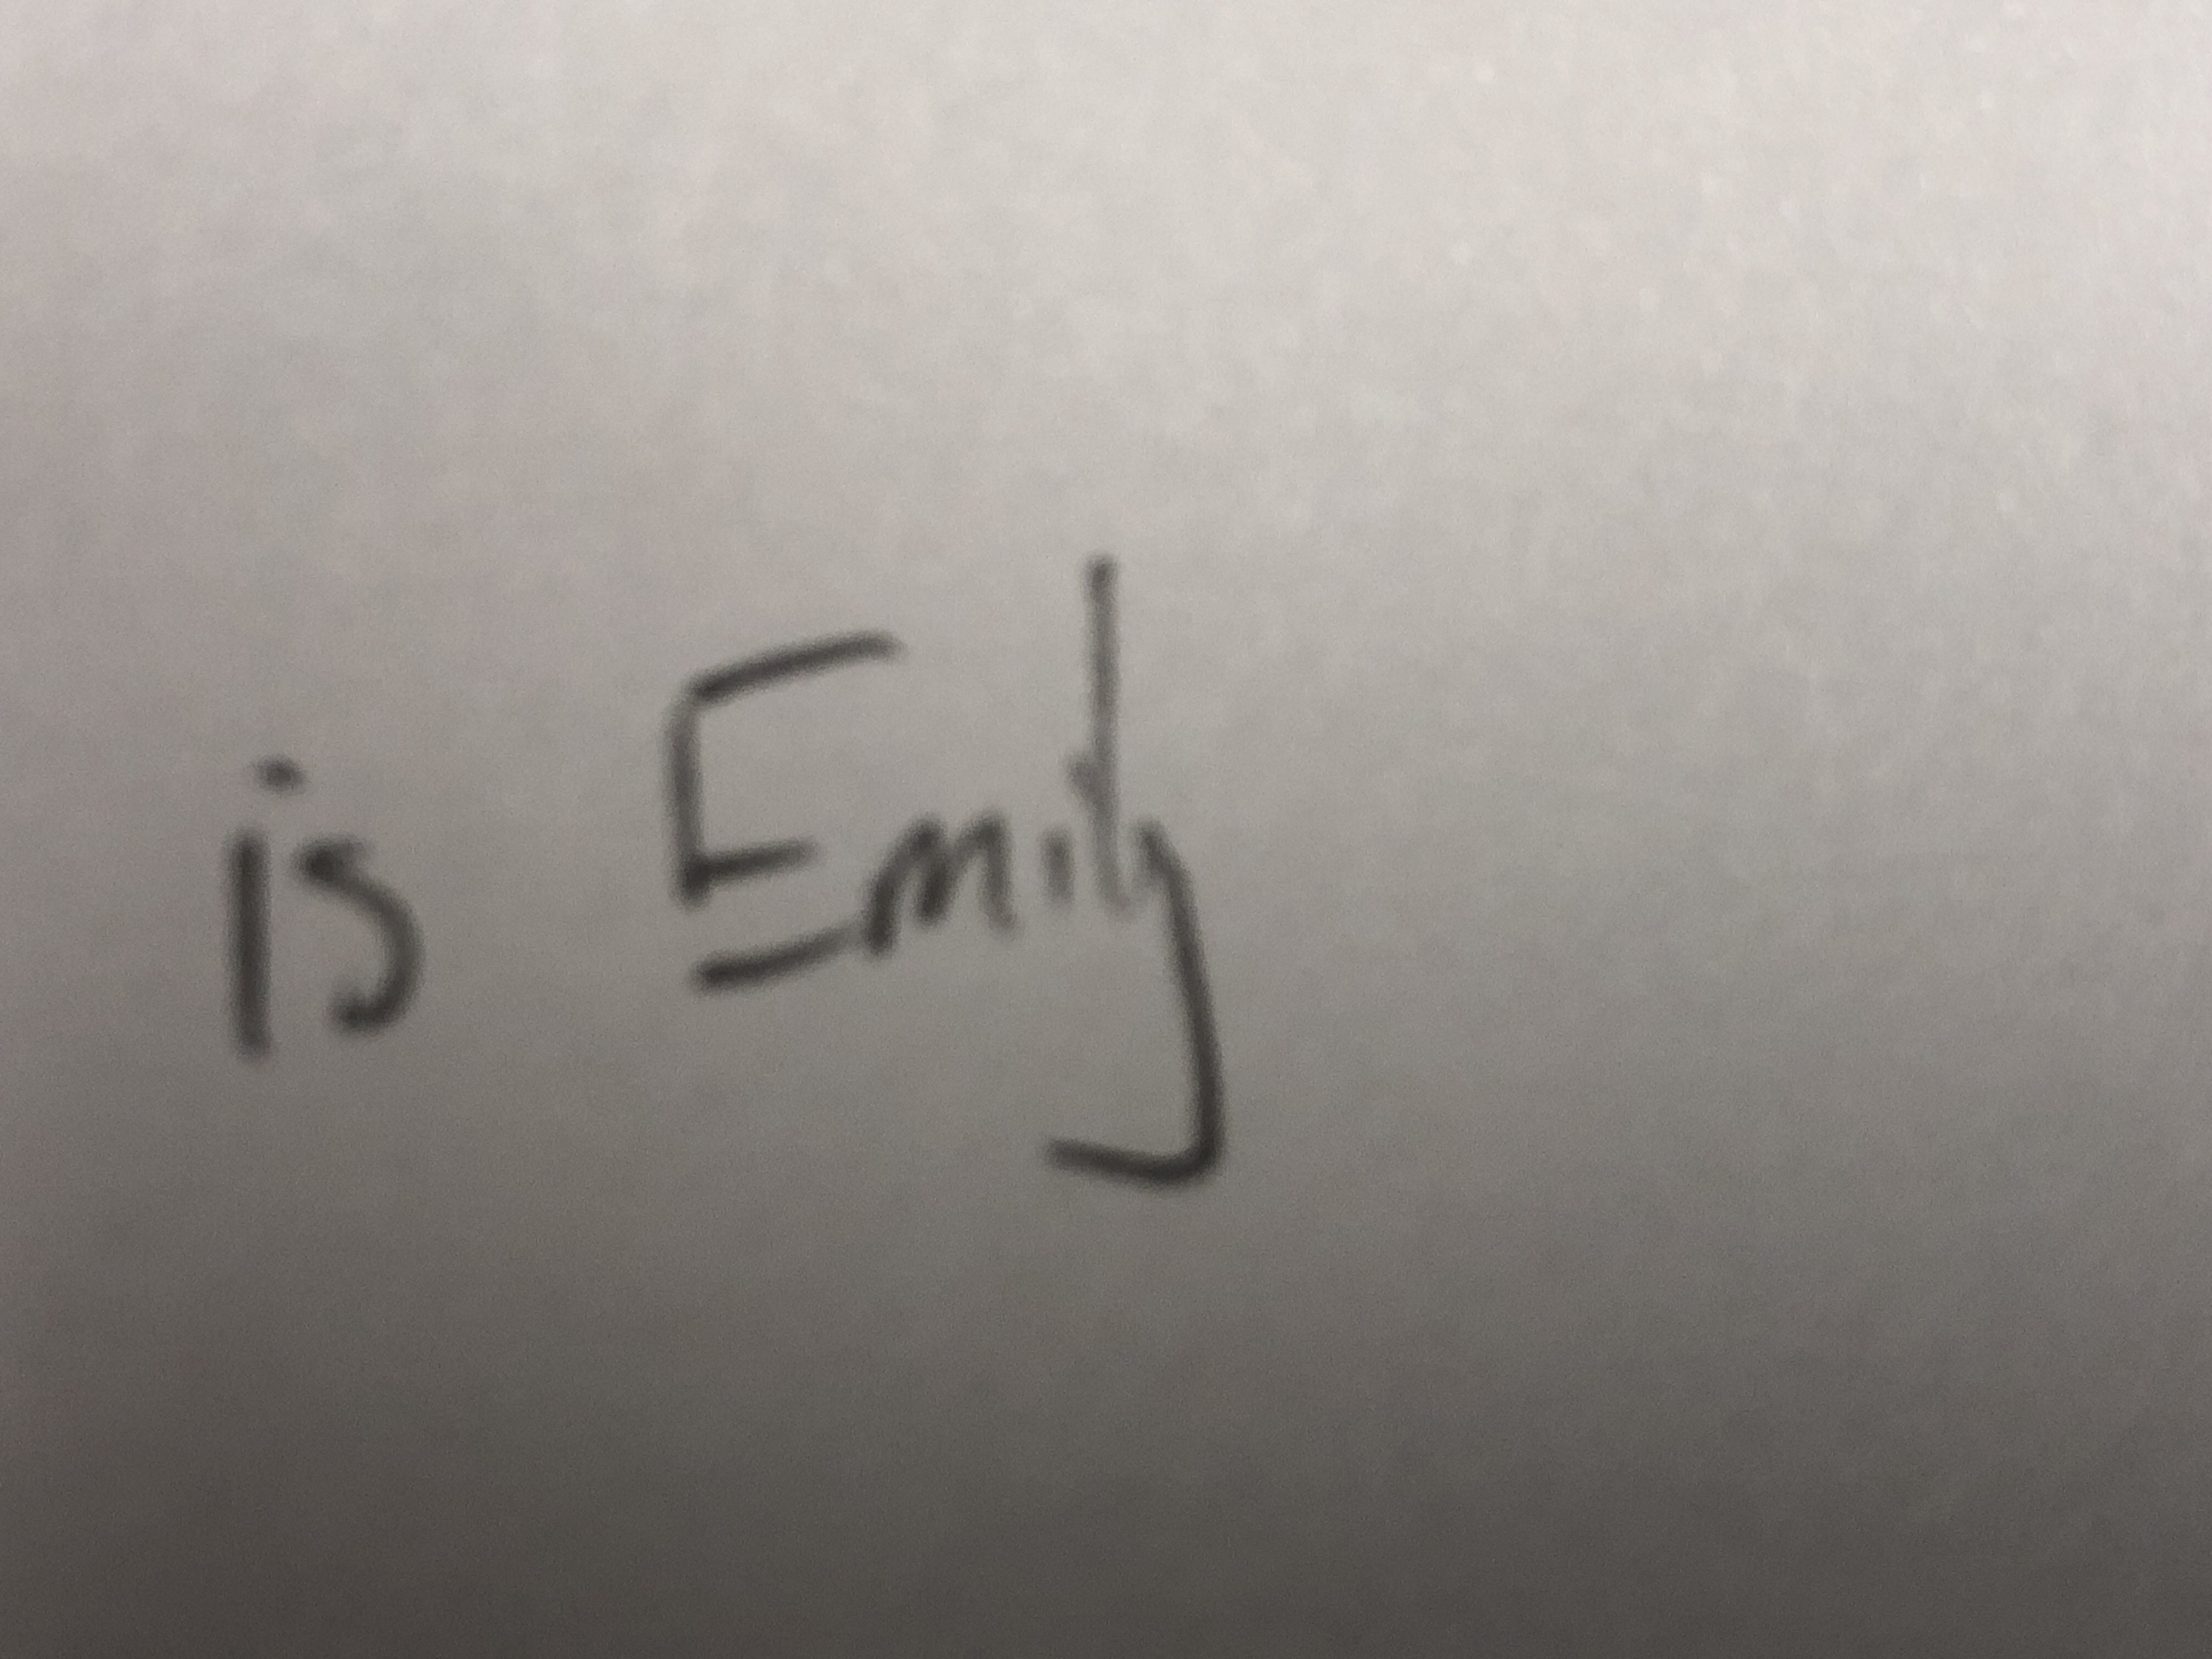 is Emily